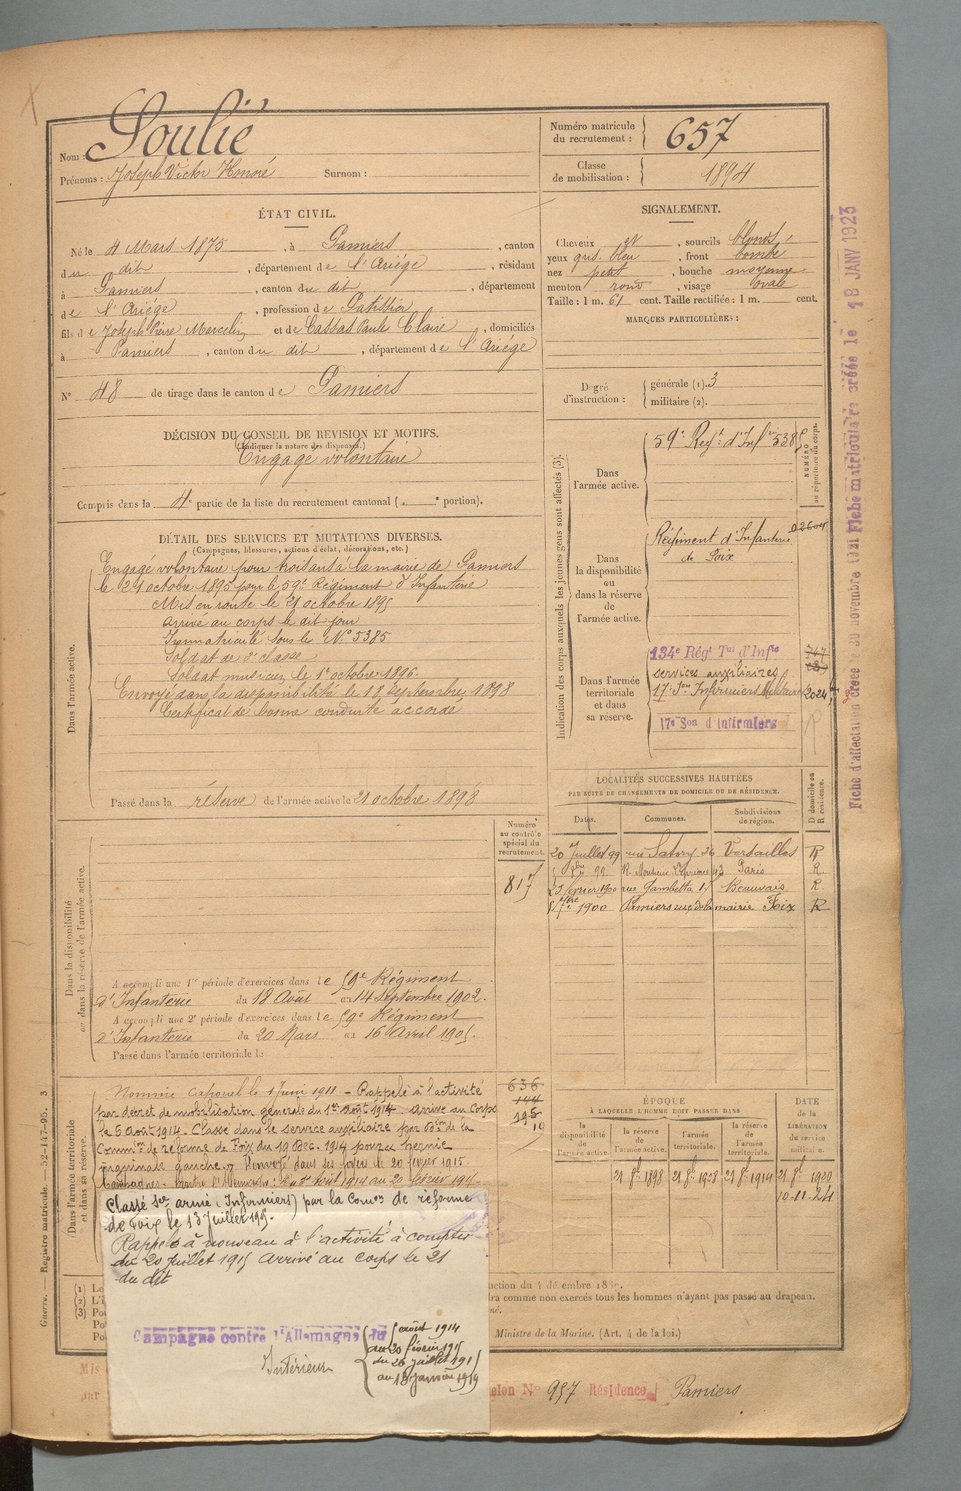 Soulié
Nom :
Prénoms : Joseph Victor Honoré Surnom :
Numéro matricule du recrutement : 657
Classe de mobilisation : 1894
ÉTAT CIVIL.
Né le 4 Mars 1875, à Pamiers, canton
du dit, département de l'Ariége, résidant
à Pamiers, canton du dit, département
de l'Ariége, profession de Patissier
fils de Joseph Pierre Marcelin et de Cassas Paule Claire, domiciliés
à Pamiers, canton du dit, département de l'Ariége
N° 48 de tirage dans le canton de Pamiers
SIGNALEMENT.
Cheveux et, sourcils blonds
yeux gris bleu, front bombé
nez petit, bouche moyenne
menton rond, visage ovale
Taille : 1 m. 61 cent. Taille rectifiée : 1 m. cent.
MARQUES PARTICULIÈRES :
Degré d'instruction : générale (1). 3
militaire (2).
DÉCISION DU CONSEIL DE REVISION ET MOTIFS.
(Indiquer la nature des dispenses.)
Engagé volontaire
Compris dans la 4e partie de la liste du recrutement cantonal ( e portion).
DÉTAIL DES SERVICES ET MUTATIONS DIVERSES.
(Campagnes, blessures, actions d'éclat, décorations, etc.)
Dans l'armée active.
Engagé volontaire pour trois ans à la mairie de Pamiers
le 21 octobre 1895 pour le 59e Régiment d'Infanterie
Mis en route le 21 octobre 1895
Arrivé au corps le dit jour
Immatriculé sous le N° 5385
Soldat de 2e classe
Soldat musicien le 1er octobre 1896
Envoyé dans la disponibilité le 18 septembre 1898
Certificat de bonne conduite accordé
Passé dans la réserve de l'armée active le 21 octobre 1898
Indication des corps auxquels les jeunes gens sont affectés (3).
NUMÉRO au répertoire du corps.
Dans l'armée active.
59e Regt d'Infie 5385
Dans la disponibilité ou dans la réserve de l'armée active.
Régiment d'Infanterie
de Foix
02604
Dans l'armée territoriale et dans sa réserve.
134e Régt Tal d'Infie
services auxiliaires
17e Son Infirmiers Militaires 2024
17e Son d'infirmiers
LOCALITÉS SUCCESSIVES HABITÉES
PAR SUITE DE CHANGEMENTS DE DOMICILE OU DE RÉSIDENCE.
Dates. Communes. Subdivisions de région. D domicile ou R résidence.
20 Juillet 99 rue Satory 26 Versailles R
99 Paris R.
23 février 1900 rue Gambetta Beauvais R.
1900 Pamiers rue de la mairie Foix R
Numéro au contrôle spécial du recrutement.
817
Dans la disponibilité ou dans la réserve de l'armée active.
A accompli une 1re période d'exercices dans le 59e Régiment
d'Infanterie du 18 Août au 14 Septembre 1902.
A accompli une 2e période d'exercices dans le 59e Régiment
d'Infanterie du 20 Mars au 16 Avril 1905.
Passé dans l'armée territoriale le
Dans l'armée territoriale et dans sa réserve.
636
144
Nommé Caporal le 1 Juin 1911 - Rappelé à l'activité
par décret de mobilisation générale du 1er Août 1914. Arrivé au Corps
le 5 Août 1914 - Classé dans le service auxiliaire par Don de la
Common de réforme de Foix du 19 Déc. 1914 pour hernie
inguinale gauche. Renvoyé dans ses foyers le 20 février 1915
Classé Ser armé (Infirmiers) par la Comon de réforme
de Foix le 13 Juillet 1915.
Rappelé à nouveau à l'activité à compter
du 20 Juillet 1915 arrivé au corps le 21
du dit
Campagne contre l'Allemagne du
Intérieur
août 1914
au 20 février 1915
du 20 juillet 1915
au 13 janvier 1919
ÉPOQUE
À LAQUELLE L'HOMME DOIT PASSER DANS
la disponibilité de l'armée active.
la réserve de l'armée active.
l'armée territoriale.
la réserve de l'armée territoriale.
DATE de la LIBÉRATION du service militaire.
21 8bre 1898 21 8bre 1908 21 8bre 1914 21 8bre 1920
10-11-24
nction du 4 décembre 18
dra comme non exercés tous les hommes n'ayant pas passé au drapeau.
Ministre de la Marine. (Art. 4 de la loi.)
Mis
par
elon N° 957 Résidence Pamiers
Guerre. — Registre matricule. — 52-147-95. 3
Fiche matriculaire créée le 18 JANV 1923